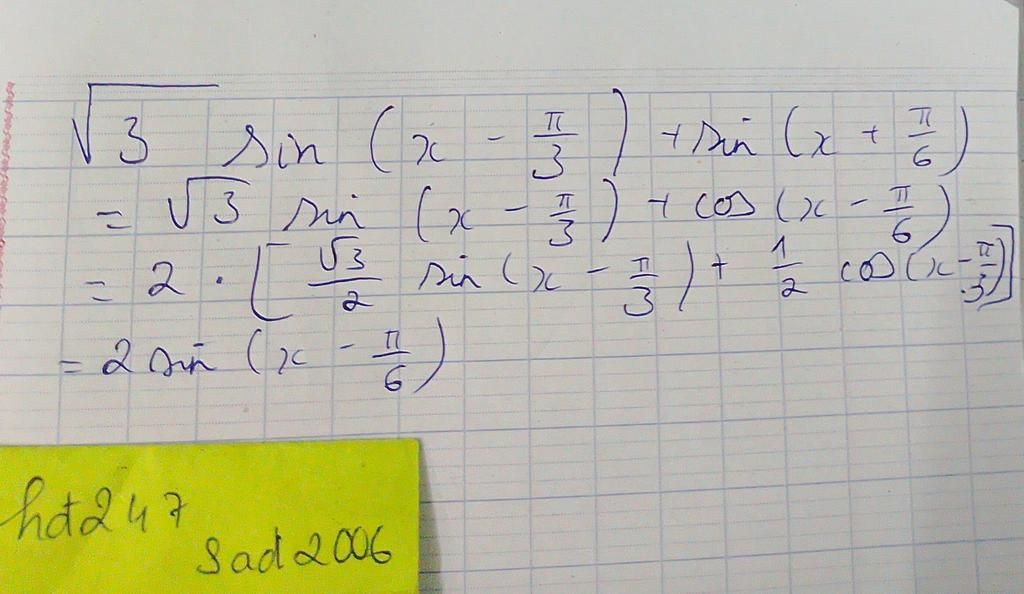 √3 sin (x - π/3) + sin (x + π/6)
= √3 sin (x - π/3) + cos (x - π/6)
= 2 · [√3/2 sin (x - π/3) + 1/2 cos (x - π/3)]
= 2 sin (x - π/6)
hd247
sad2006